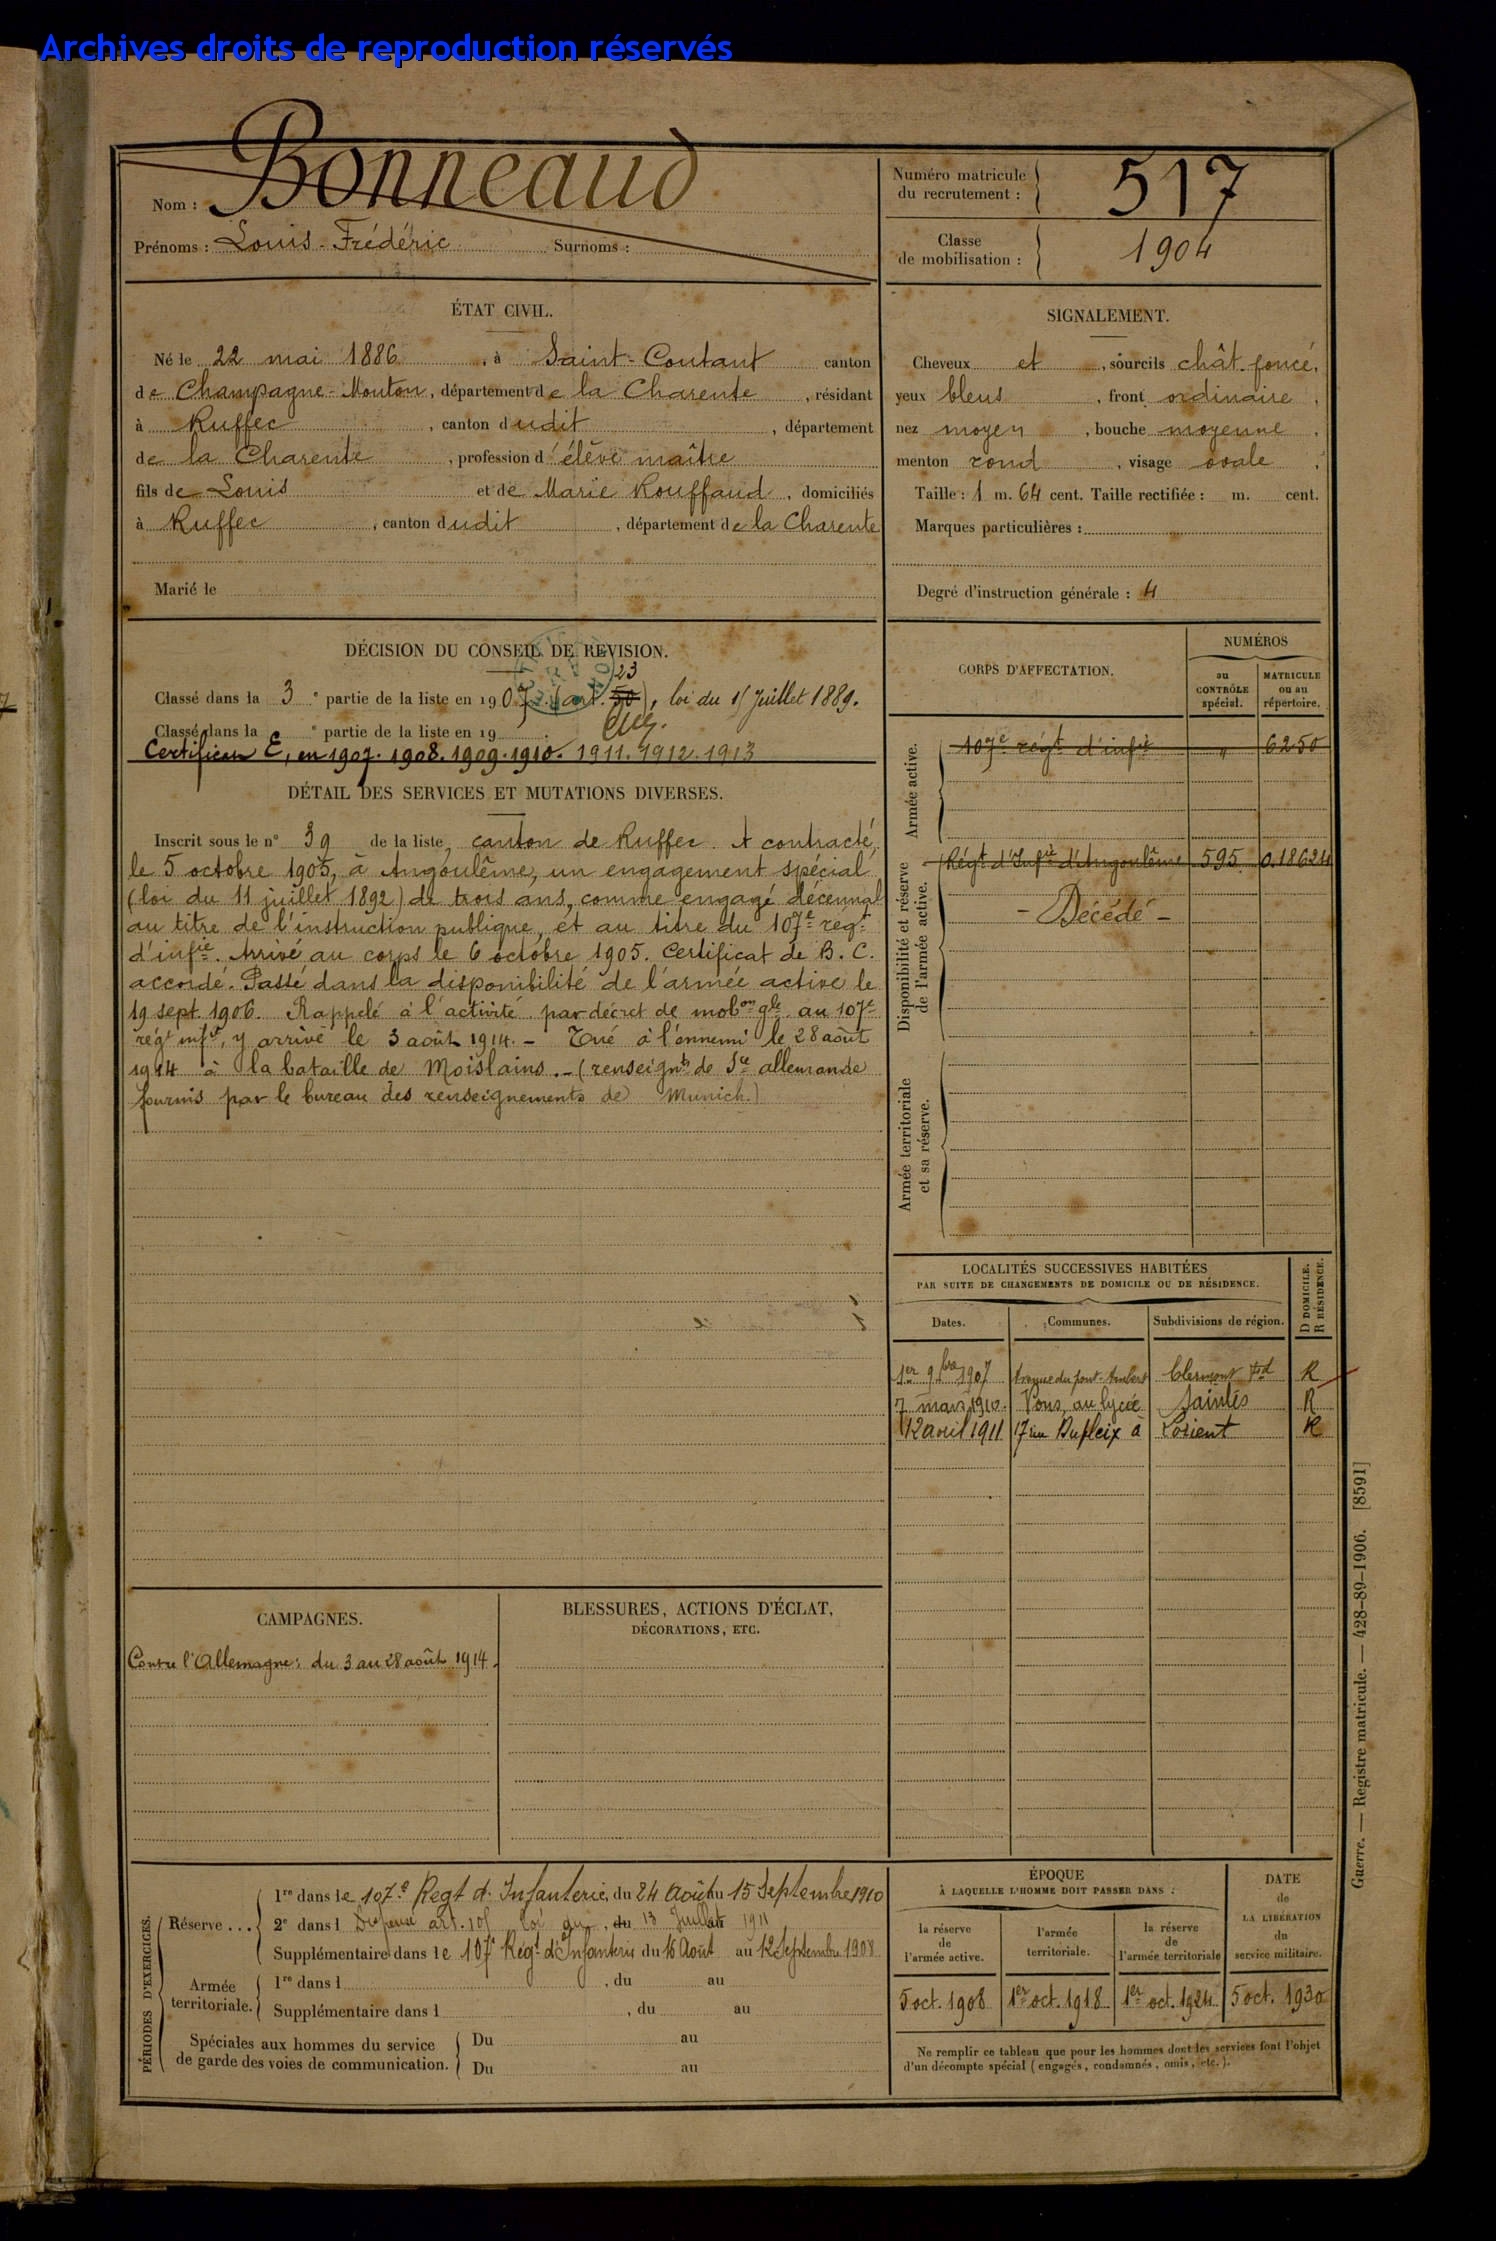 Archives droits de reproduction réservés
Nom : Bonneaud
Prénoms : Louis-Frédéric Surnoms :
Numéro matricule
du recrutement : 517
Classe
de mobilisation : 1904
ÉTAT CIVIL.
Né le 22 mai 1886, à Saint-Coutant canton
de Champagne-Mouton, département de la Charente, résidant
à Ruffec, canton dudit, département
de la Charente, profession d'élève maître
fils de Louis et de Marie Rouffaud, domiciliés
à Ruffec, canton dudit, département de la Charente
Marié le
SIGNALEMENT.
Cheveux et, sourcils chât. foncé,
yeux bleus, front ordinaire,
nez moyen, bouche moyenne,
menton rond, visage ovale,
Taille : 1 m. 64 cent. Taille rectifiée : m. cent.
Marques particulières :
Degré d'instruction générale : 4
DÉCISION DU CONSEIL DE RÉVISION.
23
Classé dans la 3e partie de la liste en 1907. (art. 50), loi du 15 Juillet 1889.
Classé dans la e partie de la liste en 19
Certificat E, en 1907. 1908. 1909. 1910. 1911. 1912. 1913
DÉTAIL DES SERVICES ET MUTATIONS DIVERSES.
Inscrit sous le n° 39 de la liste, canton de Ruffec. A contracté,
le 5 octobre 1905, à Angoulême, un engagement spécial
(loi du 11 juillet 1892) de trois ans, comme engagé décennal
au titre de l'instruction publique, et au titre du 107e rég.t
d'infie. Arrivé au corps le 6 octobre 1905. Certificat de B. C.
accordé. Passé dans la disponibilité de l'armée active le
19 sept. 1906. Rappelé à l'activité par décret de mobon gle au 107e
régt infie, y arrivé le 3 août 1914. - Tué à l'ennemi le 28 août
1914 à la bataille de Moislains. - (renseignts de Sce allemande
fournis par le bureau des renseignements de Munich.)
CORPS D'AFFECTATION.
NUMÉROS
au
CONTRÔLE
spécial.
MATRICULE
ou au
répertoire.
Armée active.
107e régt d'infie " 6250
Disponibilité et réserve
de l'armée active.
Régt d'Infie d'Angoulême 595 0.18624
- Décédé -
Armée territoriale
et sa réserve.
LOCALITÉS SUCCESSIVES HABITÉES
PAR SUITE DE CHANGEMENTS DE DOMICILE OU DE RÉSIDENCE.
Dates. Communes. Subdivisions de région. D DOMICILE. R RÉSIDENCE.
1er 9bre 1907 Avenue du pont- Clermont Fd R
7 mars 1910. Pons, au lycée Saintes R
12 avril 1911 17 rue Dupleix à Lorient R
CAMPAGNES.
Contre l'Allemagne : du 3 au 28 août 1914.
BLESSURES, ACTIONS D'ÉCLAT,
DÉCORATIONS, ETC.
PÉRIODES D'EXERCICES.
Réserve . . .
1re dans le 107e Régt d'Infanterie, du 24 Août au 15 Septembre 1910
2e dans l Dispensé art. loi du 13 Juillet 1911
Supplémentaire dans le 107e Régt d'Infanterie du 16 Août au 12 Septembre 1908
Armée
territoriale.
1re dans l , du au
Supplémentaire dans l , du au
Spéciales aux hommes du service
de garde des voies de communication.
Du au
Du au
ÉPOQUE
À LAQUELLE L'HOMME DOIT PASSER DANS :
la réserve
de
l'armée active.
l'armée
territoriale.
la réserve
de
l'armée territoriale
DATE
de
LA LIBÉRATION
du
service militaire.
5 oct. 1908 1er oct. 1918 1er oct. 1924 5 oct. 1930
Ne remplir ce tableau que pour les hommes dont les services font l'objet
d'un décompte spécial (engagés, condamnés, omis, etc.).
Guerre. — Registre matricule. — 428-89-1906. [8591]